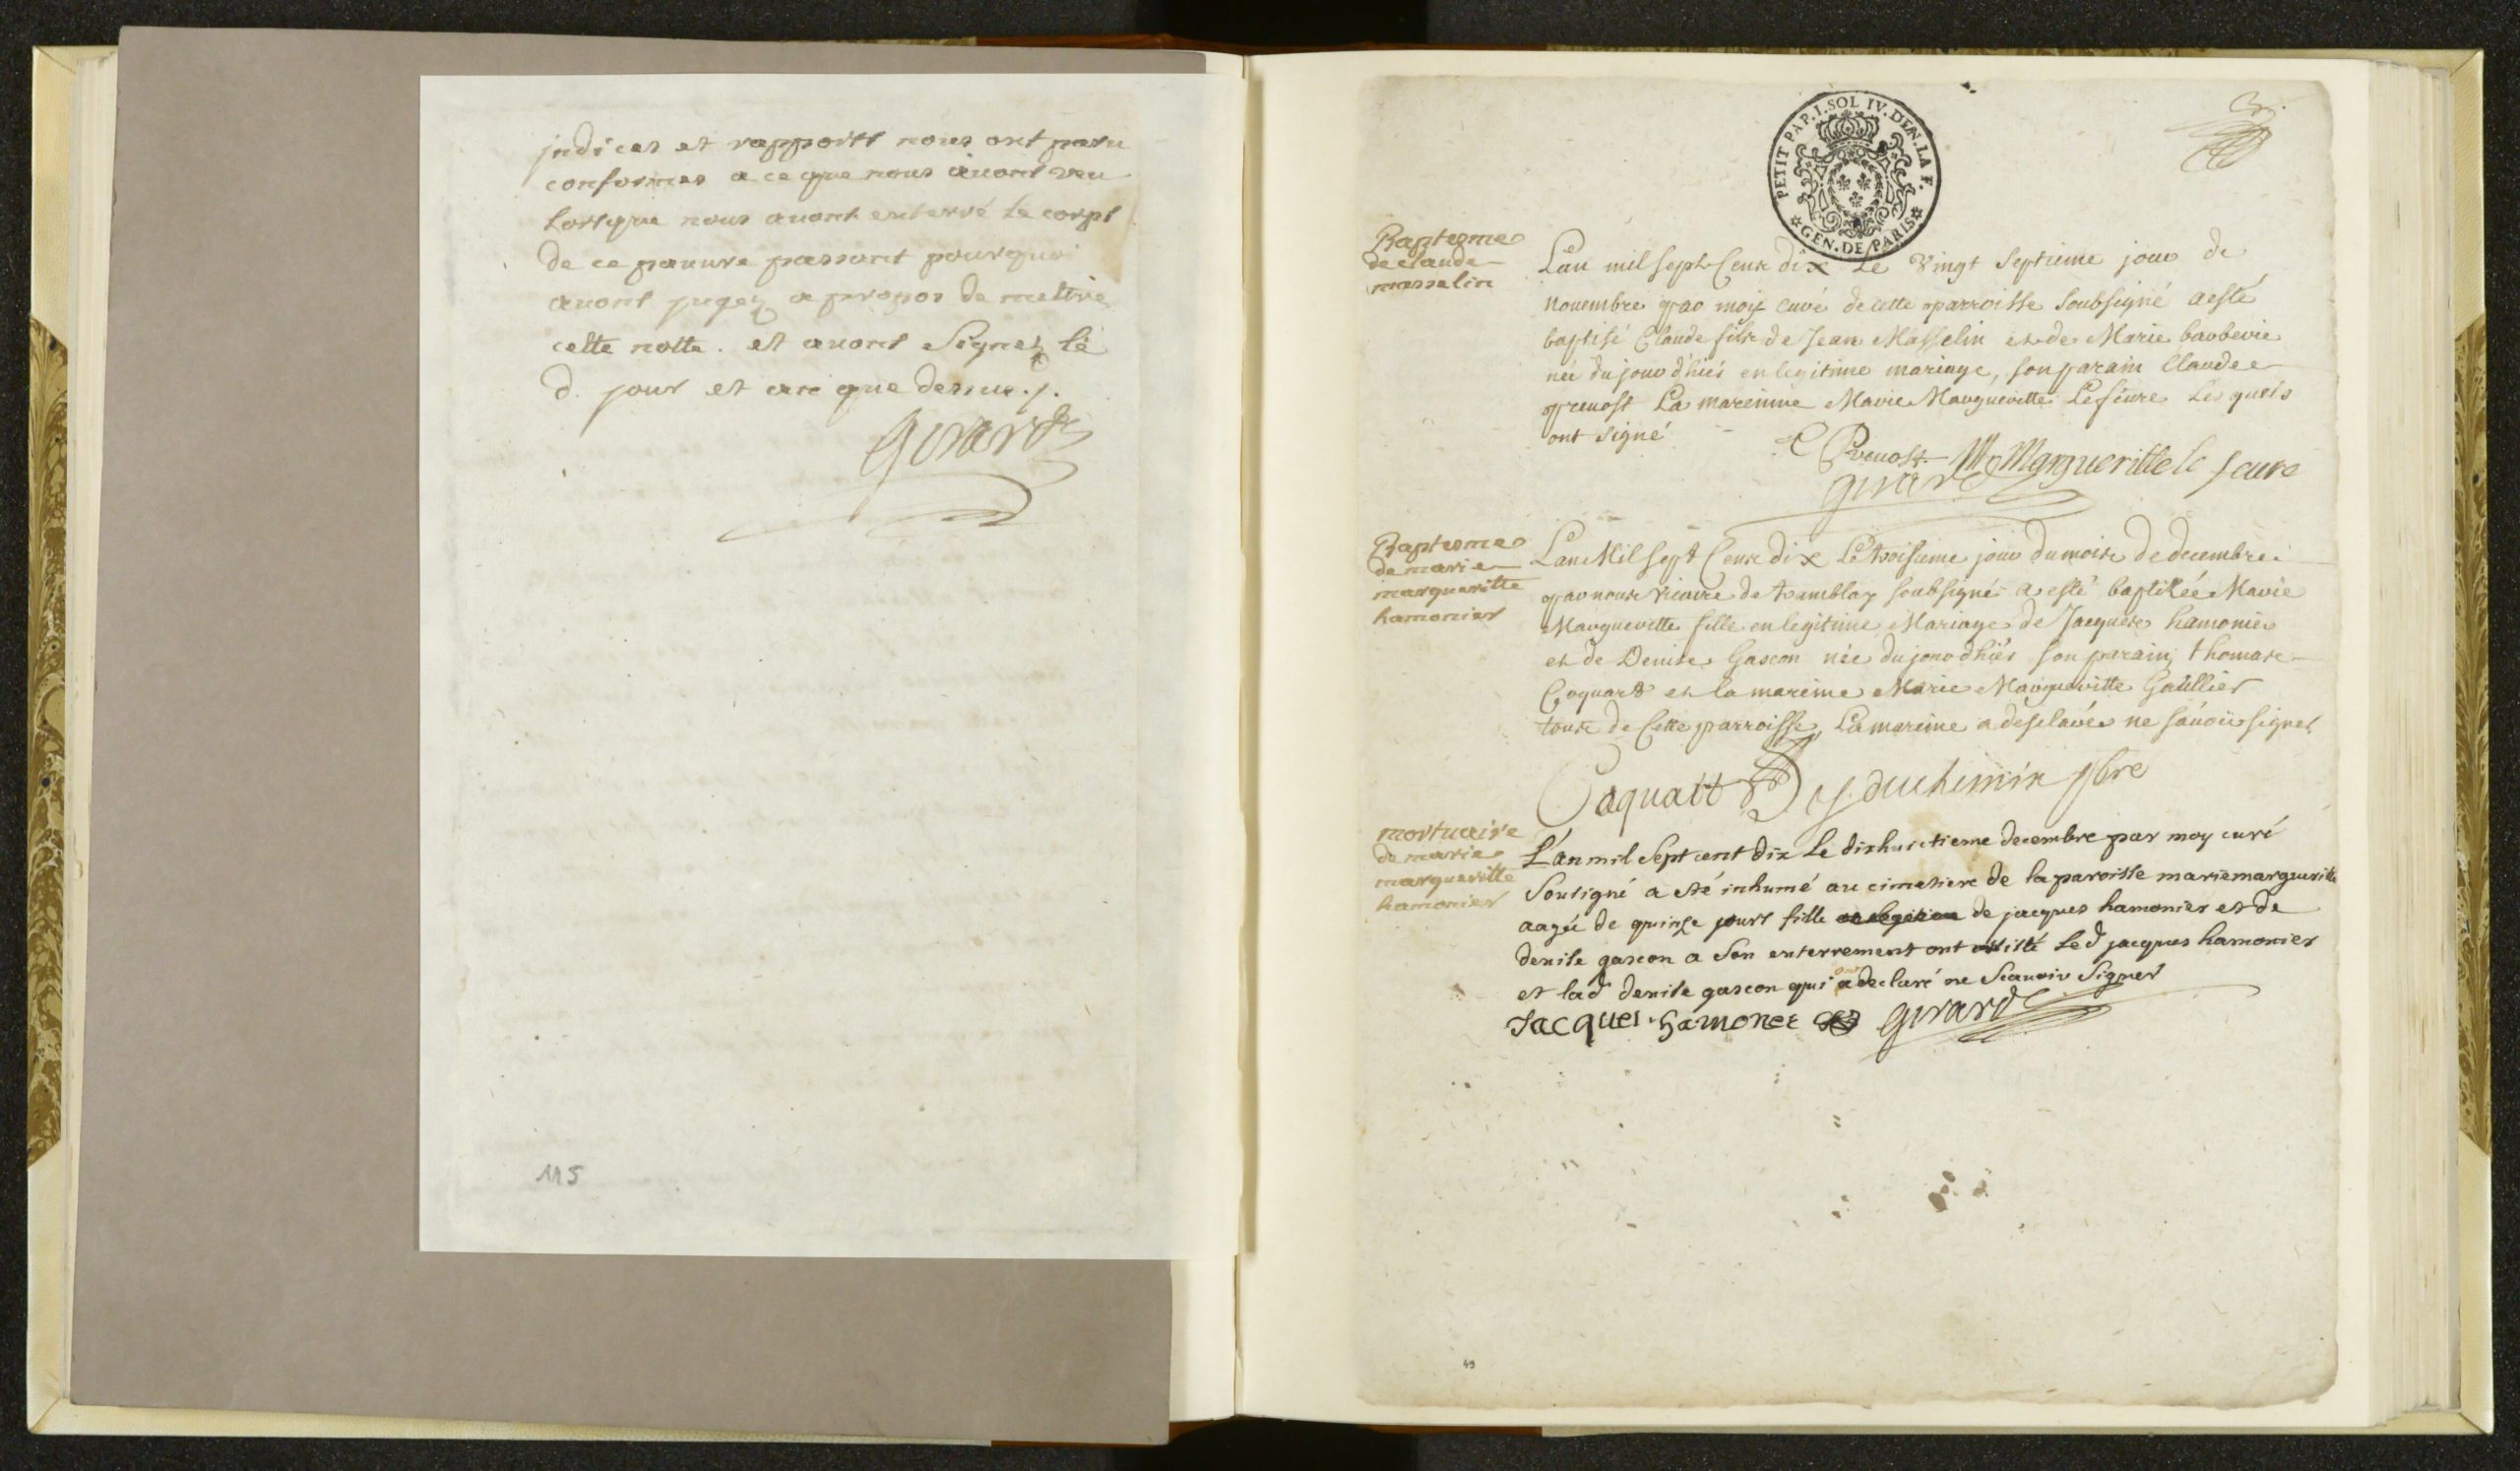 jndices et rapports nous ont paru
conformes a ce que nous auons veu
lorsque nous auons enterré le corps
de ce pauure passant pourquoi
auons jugez a propos de mettre
cette notte. et auons Signez le
d. jour et an que dessus ./.
Girard
115
PETIT PAP. I. SOL IV. DEN. LA F.
GEN. DE PARIS
3
Baptesme
de claude
masselin
L'an mil sept Cens dix Le Vingt Septieme jour de
nouembre par moy curé de cette parroisse Soubsigné a esté
baptisé Claude fils de Jean Masselin et de Marie barberie
né du jour d'hier en legitime mariage, son parain Claude
preuost La mareinne Marie Margueritte Lefeure Les quels
ont signé
C Preuost M Marguerittele feure
girard
Baptesme
de marie
margueritte
hamonier
L'an Mil sept Cens dix Le troisieme jour du mois de decembre
par nous vicaire de tramblay soubsigné a esté baptizée Marie
Margueritte fille en legitime Mariage de Jacques hamonier
et de Denise Gascon née du jour dhier son parain thomas
Coquart et la mareine Marie Margueritte Gaullier
tous de Cette parroisse, La mareine a desclarée ne sçauoir signer
Coquart J. duchemin pbre
mortuaire
de marie
margueritte
hamonier
L'an mil Sept cent dix le dixhuictieme decembre par moy curé
Sousigné a esté inhumé au cimetiere de la paroisse mariemargueritte
aagée de quinze jours fille de jacques hamonier et de
denise gascon a Son enterrement ont assisté Led jacques hamonier
et lad denise gascon qui a declaré ne Scauoir Signer
Jacques hamonet girard
49